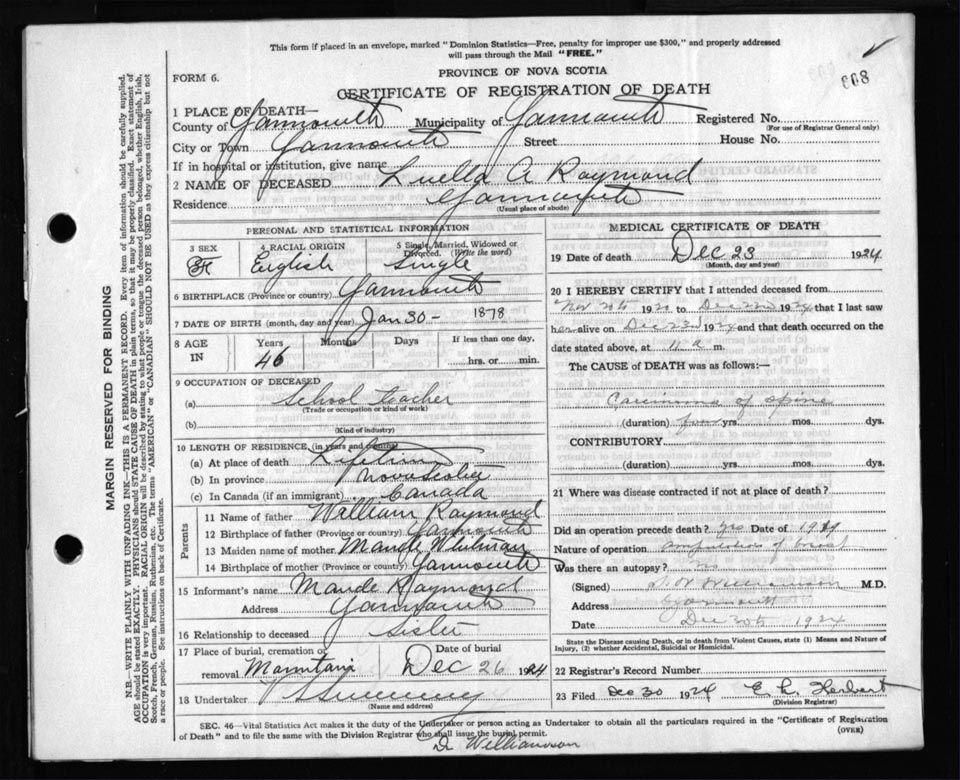 This form if placed in an envelope, marked "Dominion Statistics—Free, penalty for improper use $300," and properly addressed
will pass through the Mail "FREE."
FORM 6.
PROVINCE OF NOVA SCOTIA
CERTIFICATE OF REGISTRATION OF DEATH
1 PLACE OF DEATH—
County of Yarmouth Municipality of Yarmouth Registered No.
(For use of Registrar General only)
City or Town Yarmouth Street House No.
If in hospital or institution, give name
2 NAME OF DECEASED Luella A Raymond
Residence Yarmouth
(Usual place of abode)
PERSONAL AND STATISTICAL INFORMATION
3 SEX 4 RACIAL ORIGIN 5 Single, Married, Widowed or Divorced. (Write the word)
F English Single
6 BIRTHPLACE (Province or country) Yarmouth
7 DATE OF BIRTH (month, day and year) Jan 30 - 1878
8 AGE IN Years Months Days If less than one day,
46 hrs. or min.
9 OCCUPATION OF DECEASED
(a) School teacher
(Trade or occupation or kind of work)
(b)
(Kind of industry)
10 LENGTH OF RESIDENCE (in years and months)
(a) At place of death Lifetime
(b) In province Nova Scotia
(c) In Canada (if an immigrant) Canada
Parents
11 Name of father William Raymond
12 Birthplace of father (Province or country) Yarmouth
13 Maiden name of mother Maude Whitman
14 Birthplace of mother (Province or country) Yarmouth
15 Informant's name Maude Raymond
Address Yarmouth
16 Relationship to deceased Sister
17 Place of burial, cremation or removal Date of burial
Dec 26 1924
18 Undertaker
(Name and address)
MEDICAL CERTIFICATE OF DEATH
19 Date of death Dec 23 1924
(Month, day and year)
20 I HEREBY CERTIFY that I attended deceased from
Nov 30th 19 to Dec 22nd 1924 that I last saw
her alive on Dec 22nd 1924 and that death occurred on the
date stated above, at 11 a m.
The CAUSE of DEATH was as follows:—
Carcinoma of Spine
(duration) four yrs. mos. dys.
CONTRIBUTORY
(duration) yrs. mos. dys.
21 Where was disease contracted if not at place of death?
Did an operation precede death? Yes Date of 19
Nature of operation amputation of breast
Was there an autopsy? No
(Signed) Williamson M.D.
Address Yarmouth
Date Dec 30th 1924
State the Disease causing Death, or in death from Violent Causes, state (1) Means and Nature of Injury, (2) whether Accidental, Suicidal or Homicidal.
22 Registrar's Record Number
23 Filed Dec 30 1924 E. L. Herbert
(Division Registrar)
SEC. 46—Vital Statistics Act makes it the duty of the Undertaker or person acting as Undertaker to obtain all the particulars required in the "Certificate of Registration
of Death" and to file the same with the Division Registrar who shall issue the burial permit. (OVER)
Dr Williamson
MARGIN RESERVED FOR BINDING
N.B.—WRITE PLAINLY WITH UNFADING INK—THIS IS A PERMANENT RECORD. Every item of information should be carefully supplied.
AGE should be stated EXACTLY. PHYSICIANS should STATE CAUSE OF DEATH in plain terms, so that it may be properly classified. Exact statement of
OCCUPATION is very important. RACIAL ORIGIN will be described by stating to what people or tongue the deceased person belonged, whether English, Irish,
Scotch, French, German, Russian, Ruthenian, etc. The terms "AMERICAN" or "CANADIAN" SHOULD NOT BE USED as they express citizenship but not
a race or people. See instructions on back of Certificate.